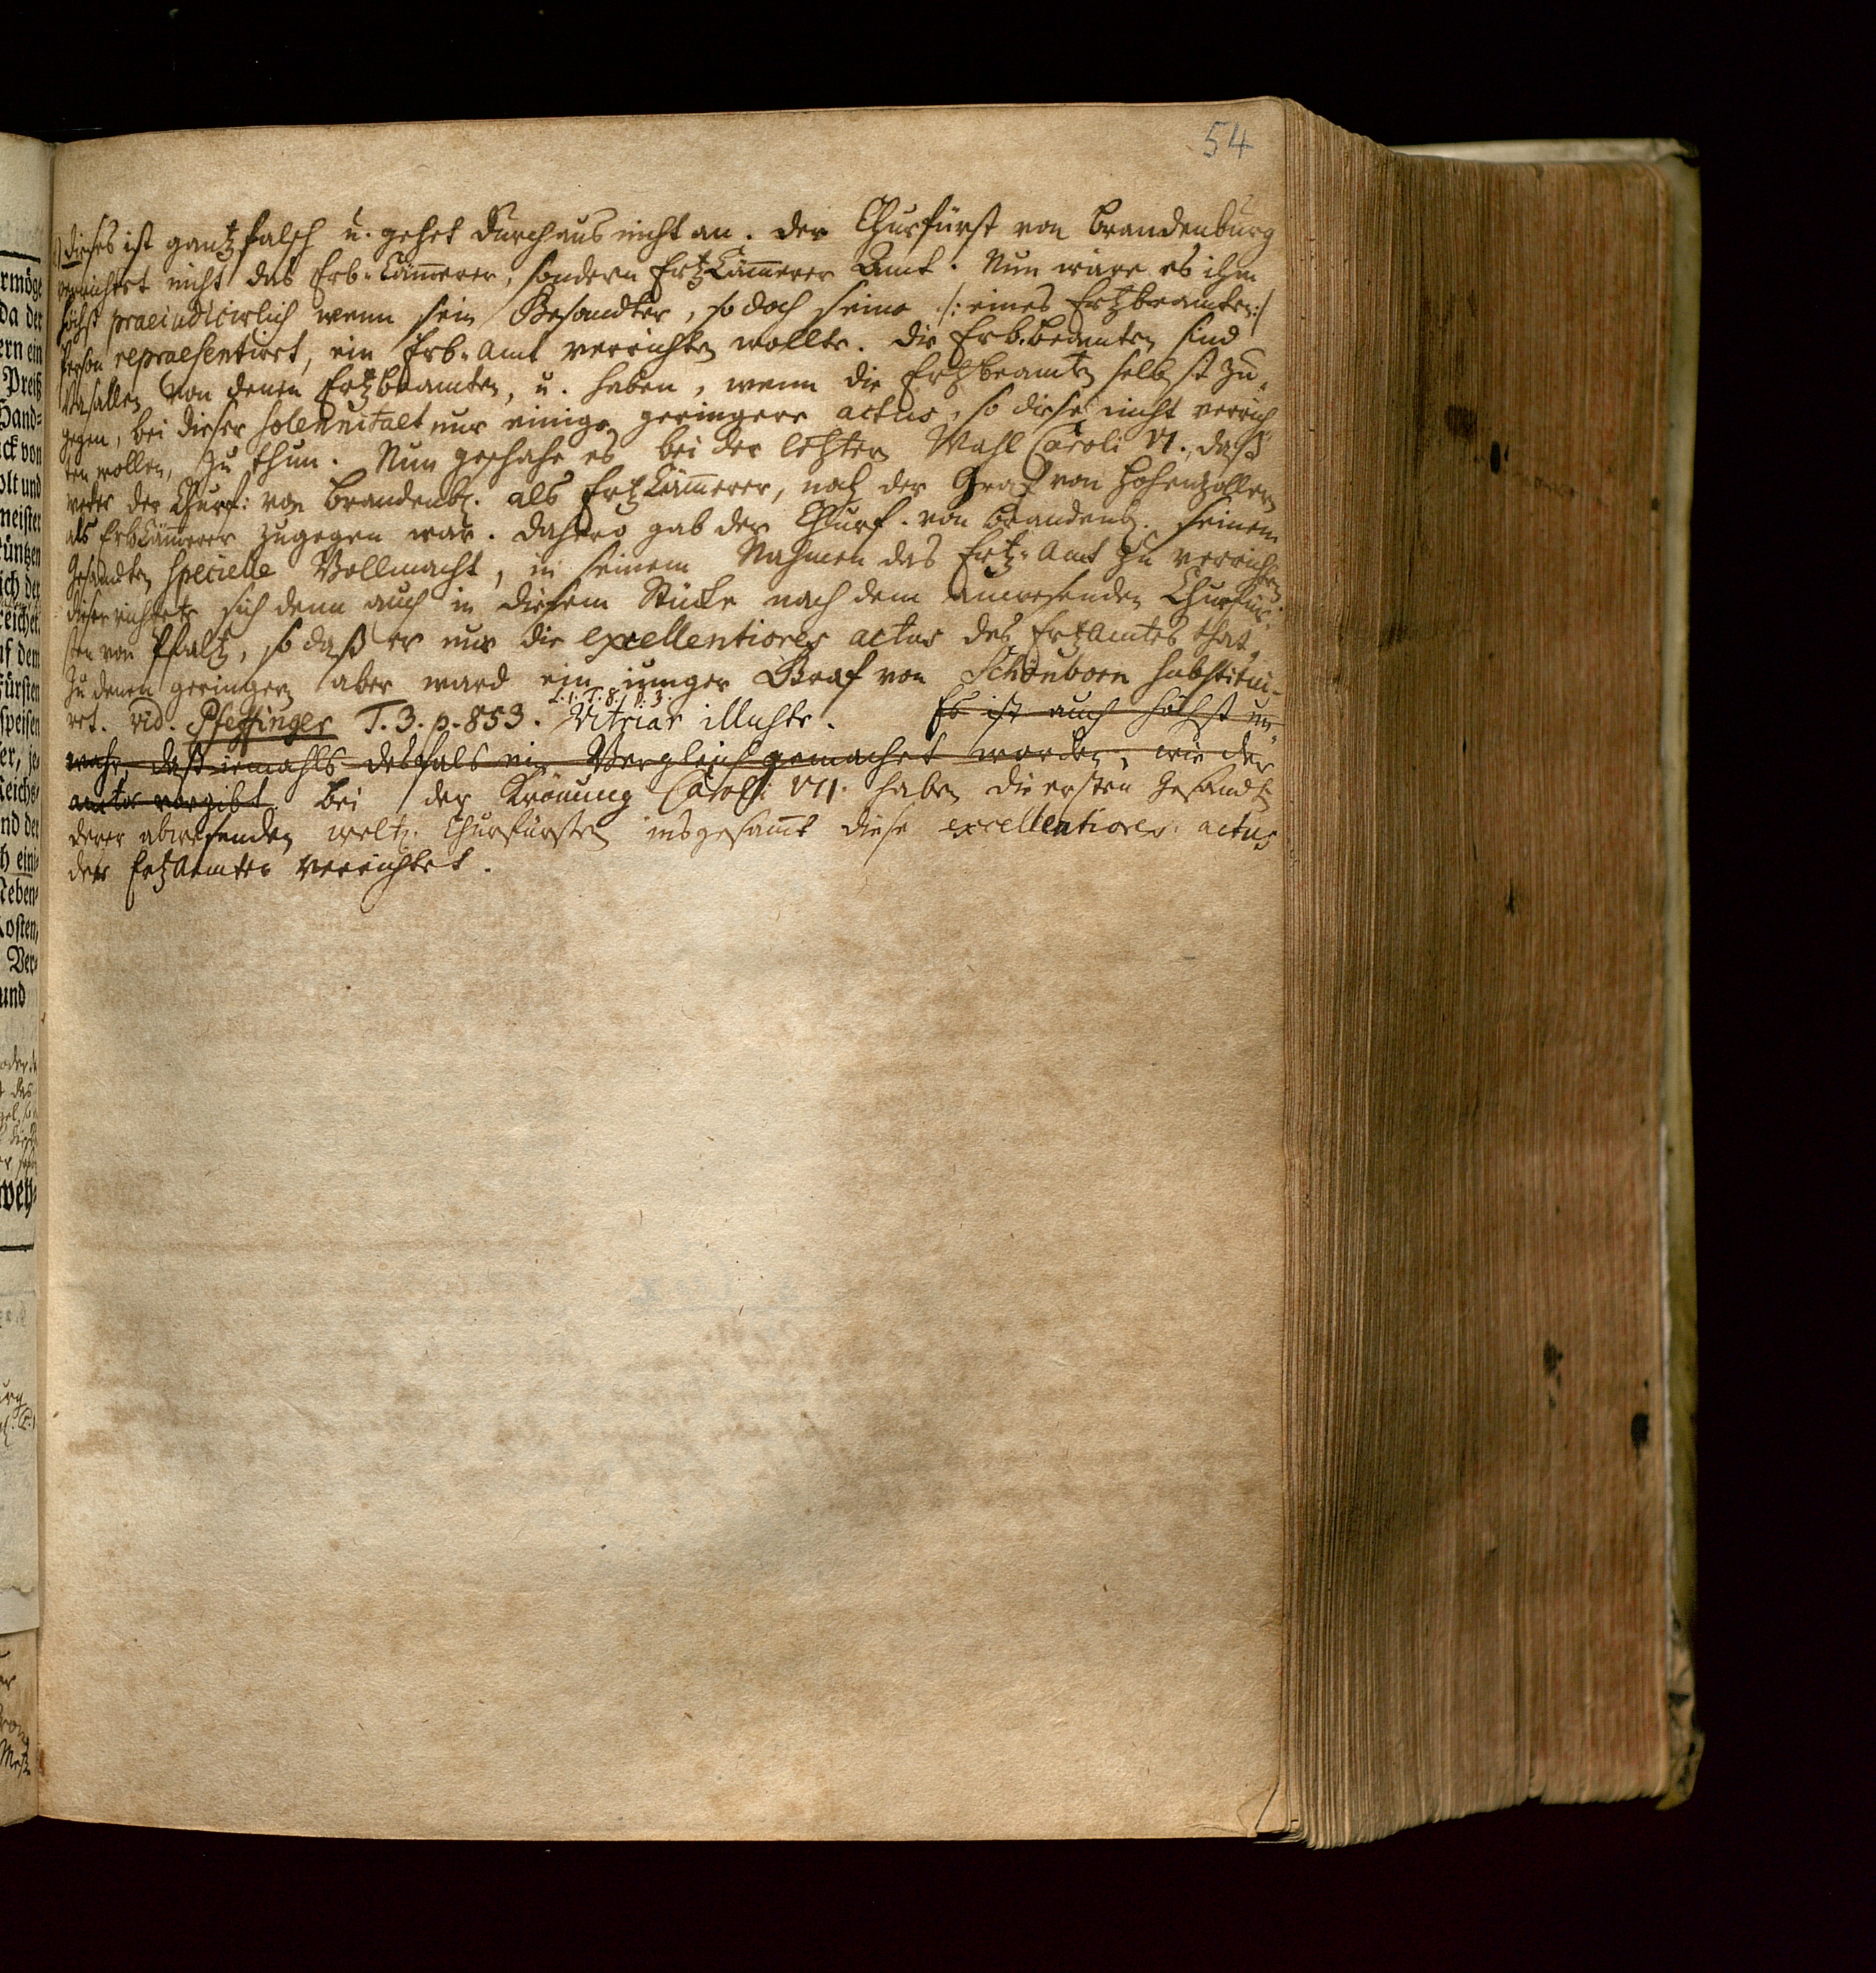 54
dieses ist gantz falsch u. gehet durchaus nicht an. der Churfürst von Brandenburg
verrichtet nicht das Erb-Cämerer, sondern ErtzCämerer Amt. Nun wäre es ihm
höchst praeiudicirlich wenn sein Gesandter, so doch seine /: eines Ertzbeamten :/
Person repraesentirt, ein Erb-Amt verrichten wollte. Die Erb-beamten sind
Vasallen von denen Ertzbeamten, u. haben, wenn die Ertzbeamten selbst zu-
gegen, bei dieser solennitaet nur einige geringere actus, so diese nicht verrich
ten wollen, zu thun. Nun geschahe es bei der letzten Wahl Caroli VI., daß
weder der Churf: von Brandenb. als ErtzCämerer, noch der Graf von Hohenzollern
als ErbCämerer zugegen war. Dahero gab der Churf. von Brandenb. seinem
Gesandten specielle Vollmacht, in seinem Nahmen das Ertz-Amt zu verrichten.
dieser richtete sich denn auch in diesem Stücke nach dem anwesenden Churfür-
sten von Pfaltz, so daß er nur die excellentiores actus des ErtzAmtes that,
zu denen geringern aber ward ein iunger Graf von Schönborn substitui-
L. 1. T. 8. p. 3.
ret. vid. Pfeffinger T. 3. p. 853. Vitriar illustr. Es ist auch höchst un-
wahr, daß iemahls desfals ein Vergleich gemachet worden, wie der
autor vorgibt. Bei der Krönung Caroli VII. haben die ersten Gesandten
derer abwesenden weltl. Churfürsten insgesamt diese excellentiores actus
der ErtzAemter verrichtet.